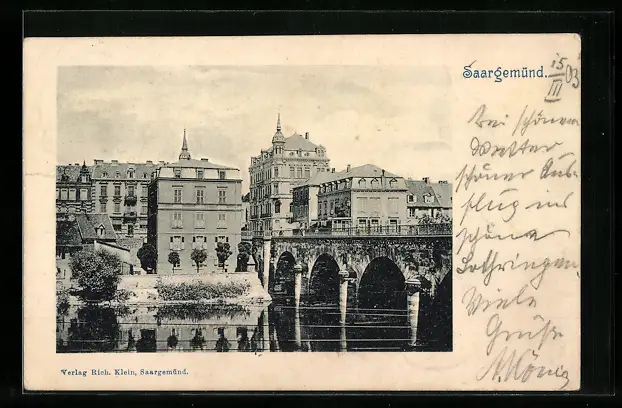 Saargemünd.
15/III 03
Bei schönem
Wetter
schöner Aus-
flug ins
schöne
Lothringen.
Viele
Grüße
M. König
Verlag Rich. Klein, Saargemünd.